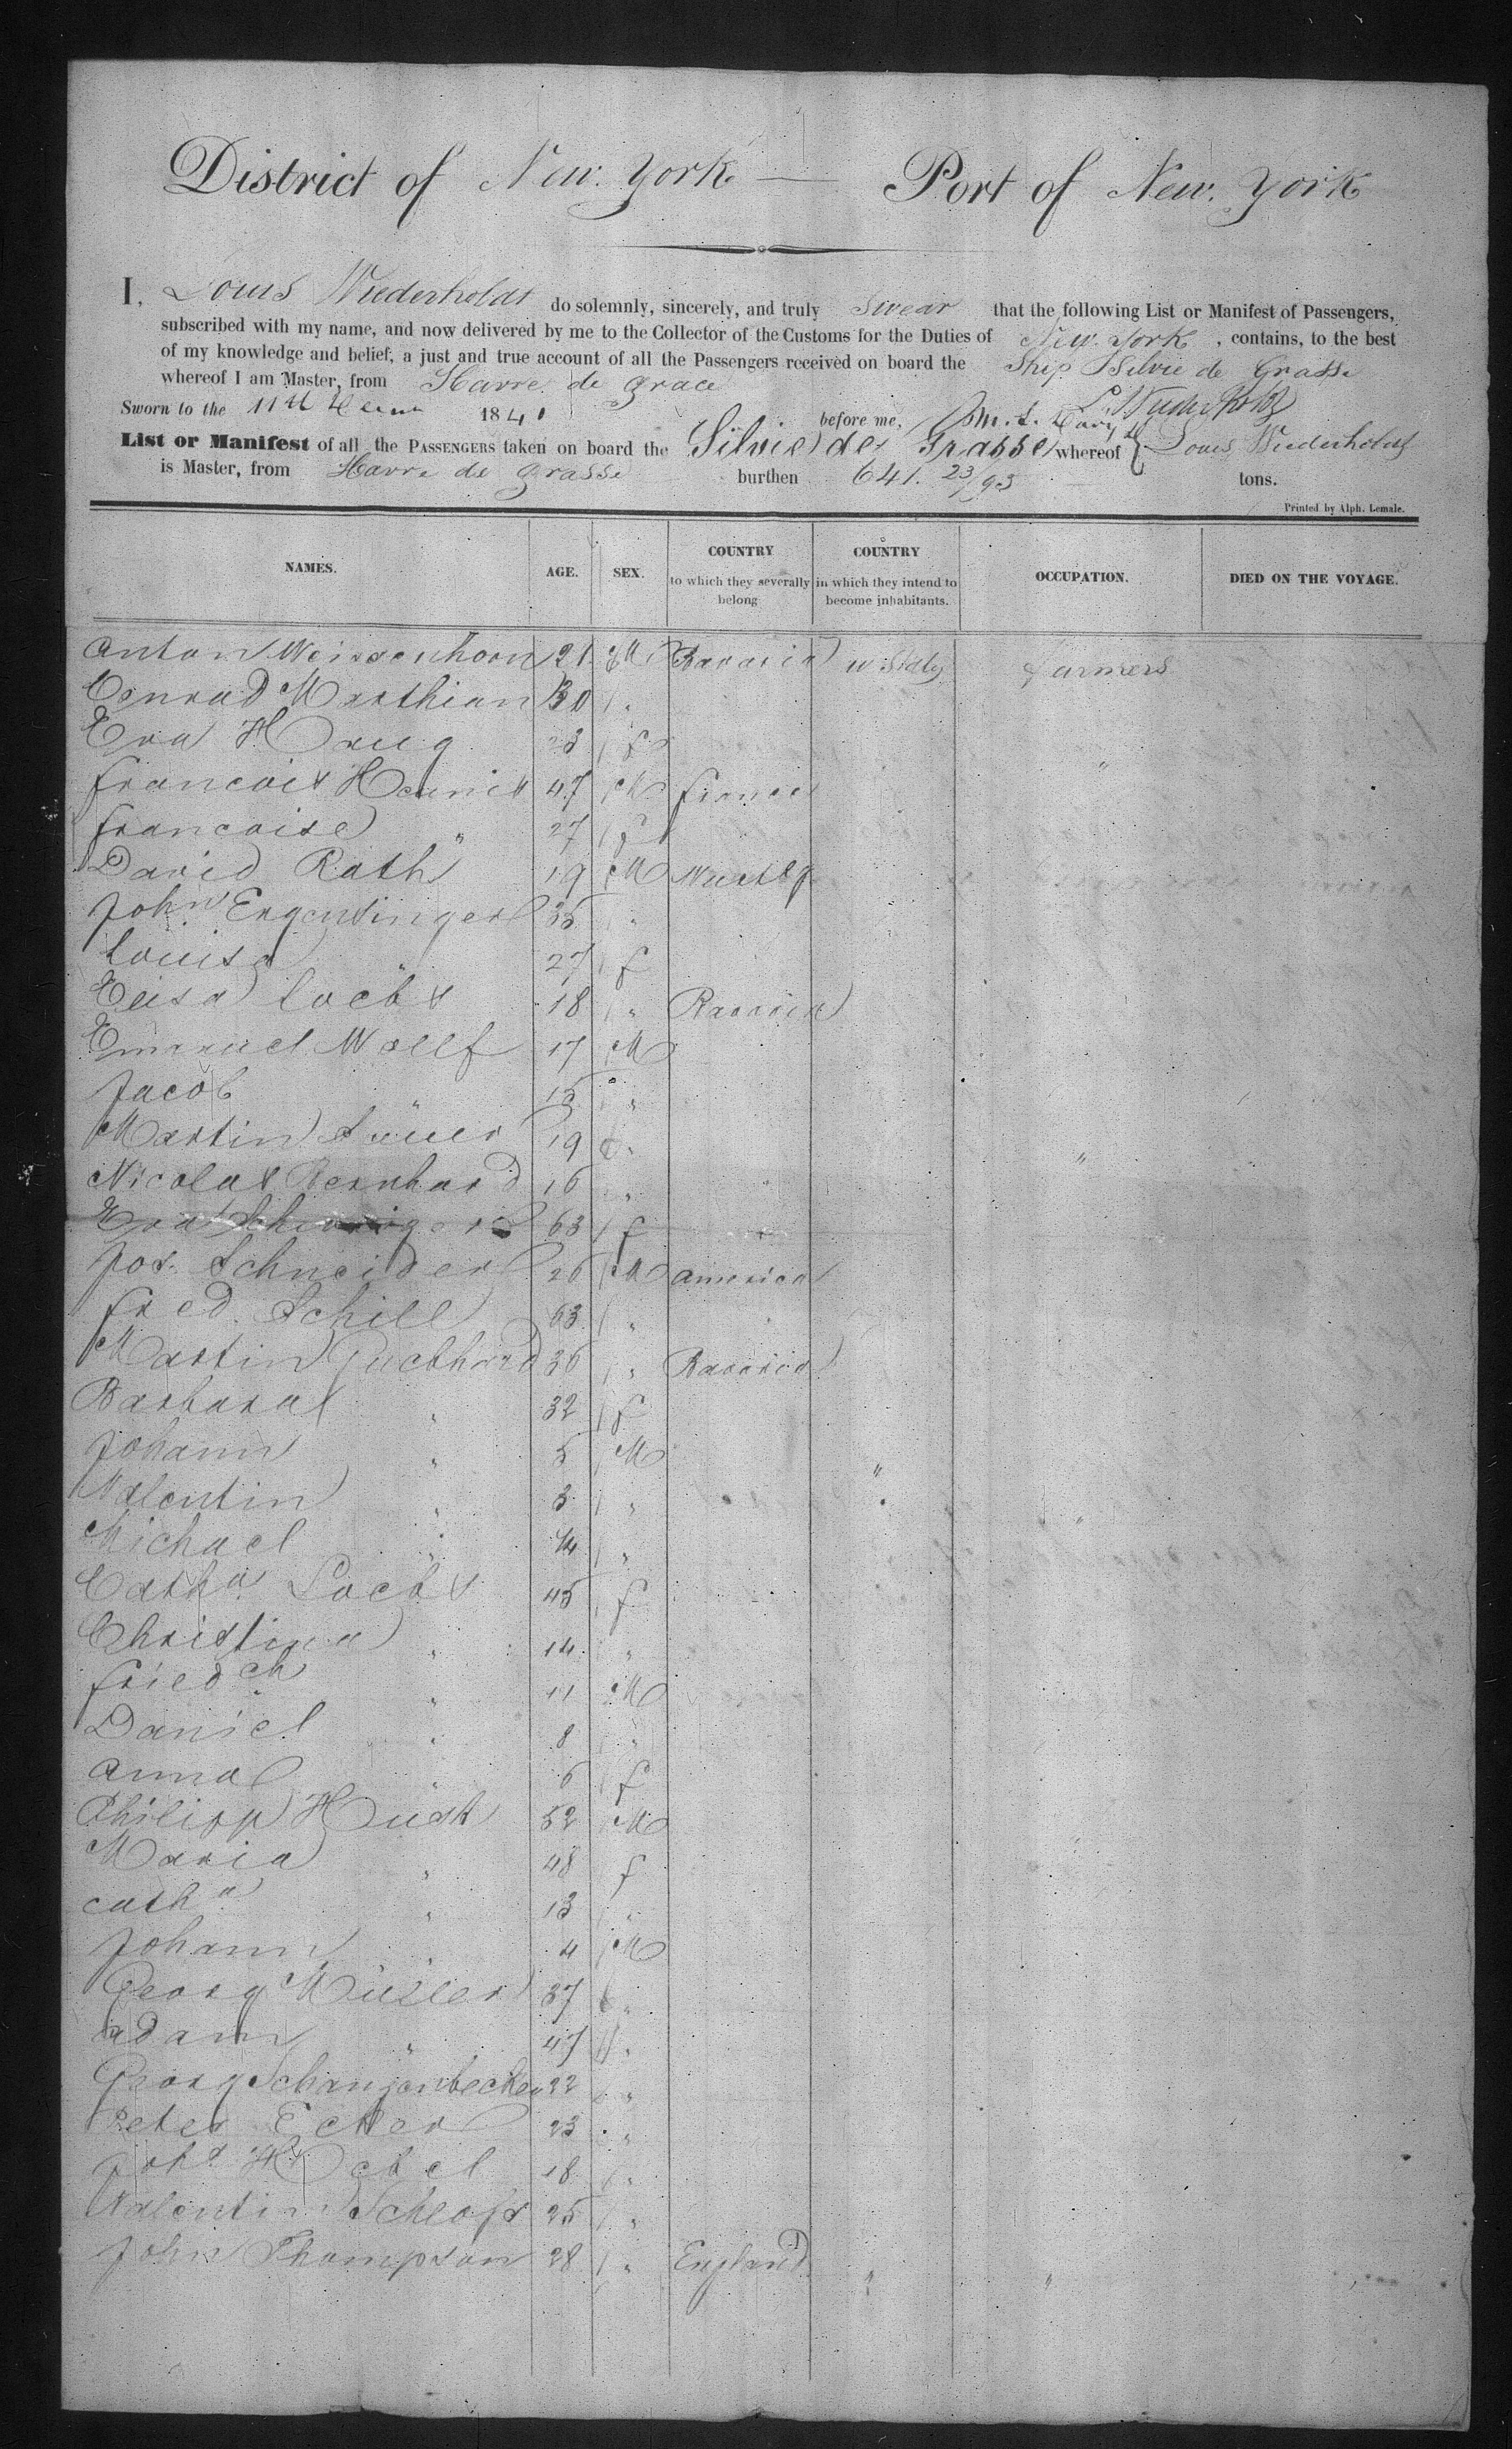 District of New. York — Port of New. York
I, Louis Wiederholdt do solemnly, sincerely, and truly swear that the following List or Manifest of Passengers,
subscribed with my name, and now delivered by me to the Collector of the Customs for the Duties of New. York, contains, to the best
of my knowledge and belief, a just and true account of all the Passengers received on board the Ship Silvie de Grasse
whereof I am Master, from Havre de grace
L Wiederholdt
Sworn to the 11th 1841 before me,
List or Manifest of all the PASSENGERS taken on board the Silvie de Grasse whereof Louis Wiederholdt
is Master, from Havre de grasse burthen 641. 23/95 tons.
Printed by Alph. Lemale.
NAMES. AGE. SEX. COUNTRY to which they severally belong COUNTRY in which they intend to become inhabitants. OCCUPATION. DIED ON THE VOYAGE.
Anton Weisgenhorn 21 M Bavaria farmers
Conrad Marthian 30 "
Eva Haug 23 f
francois Hennis 47 M france
francoise " 27 f
David Rath 19 M
John Ergensinger 35 "
Louisa " 27 f
Elisa Loebs 18 " Bavaria
Emanuel Wollf 17 M
Jacob " 15 "
Martin 19 "
Nicolas Bernhard 16 "
Eva 63 f
Jos. Schneider 26 M america
fred. Schill 63 "
Martin 36 " Bavaria
Barbara " 32 f
Johann " 5 M
Valentin " 3 "
Michael " "
Catha Loebs 45 f
Christina " 14 "
friedch " 11 M
Daniel " 8 "
anna " 6 f
Philipp 52 M
Maria " 48 f
catha " 13 "
Johann " 4 M
Georg Müller 37 "
adam " 47 "
Georg Schanzenbecher 22 "
Peter Ecker 23 "
Johs Hebel 18 "
Valentin Schloss 25 "
John Thompson 28 " England " "